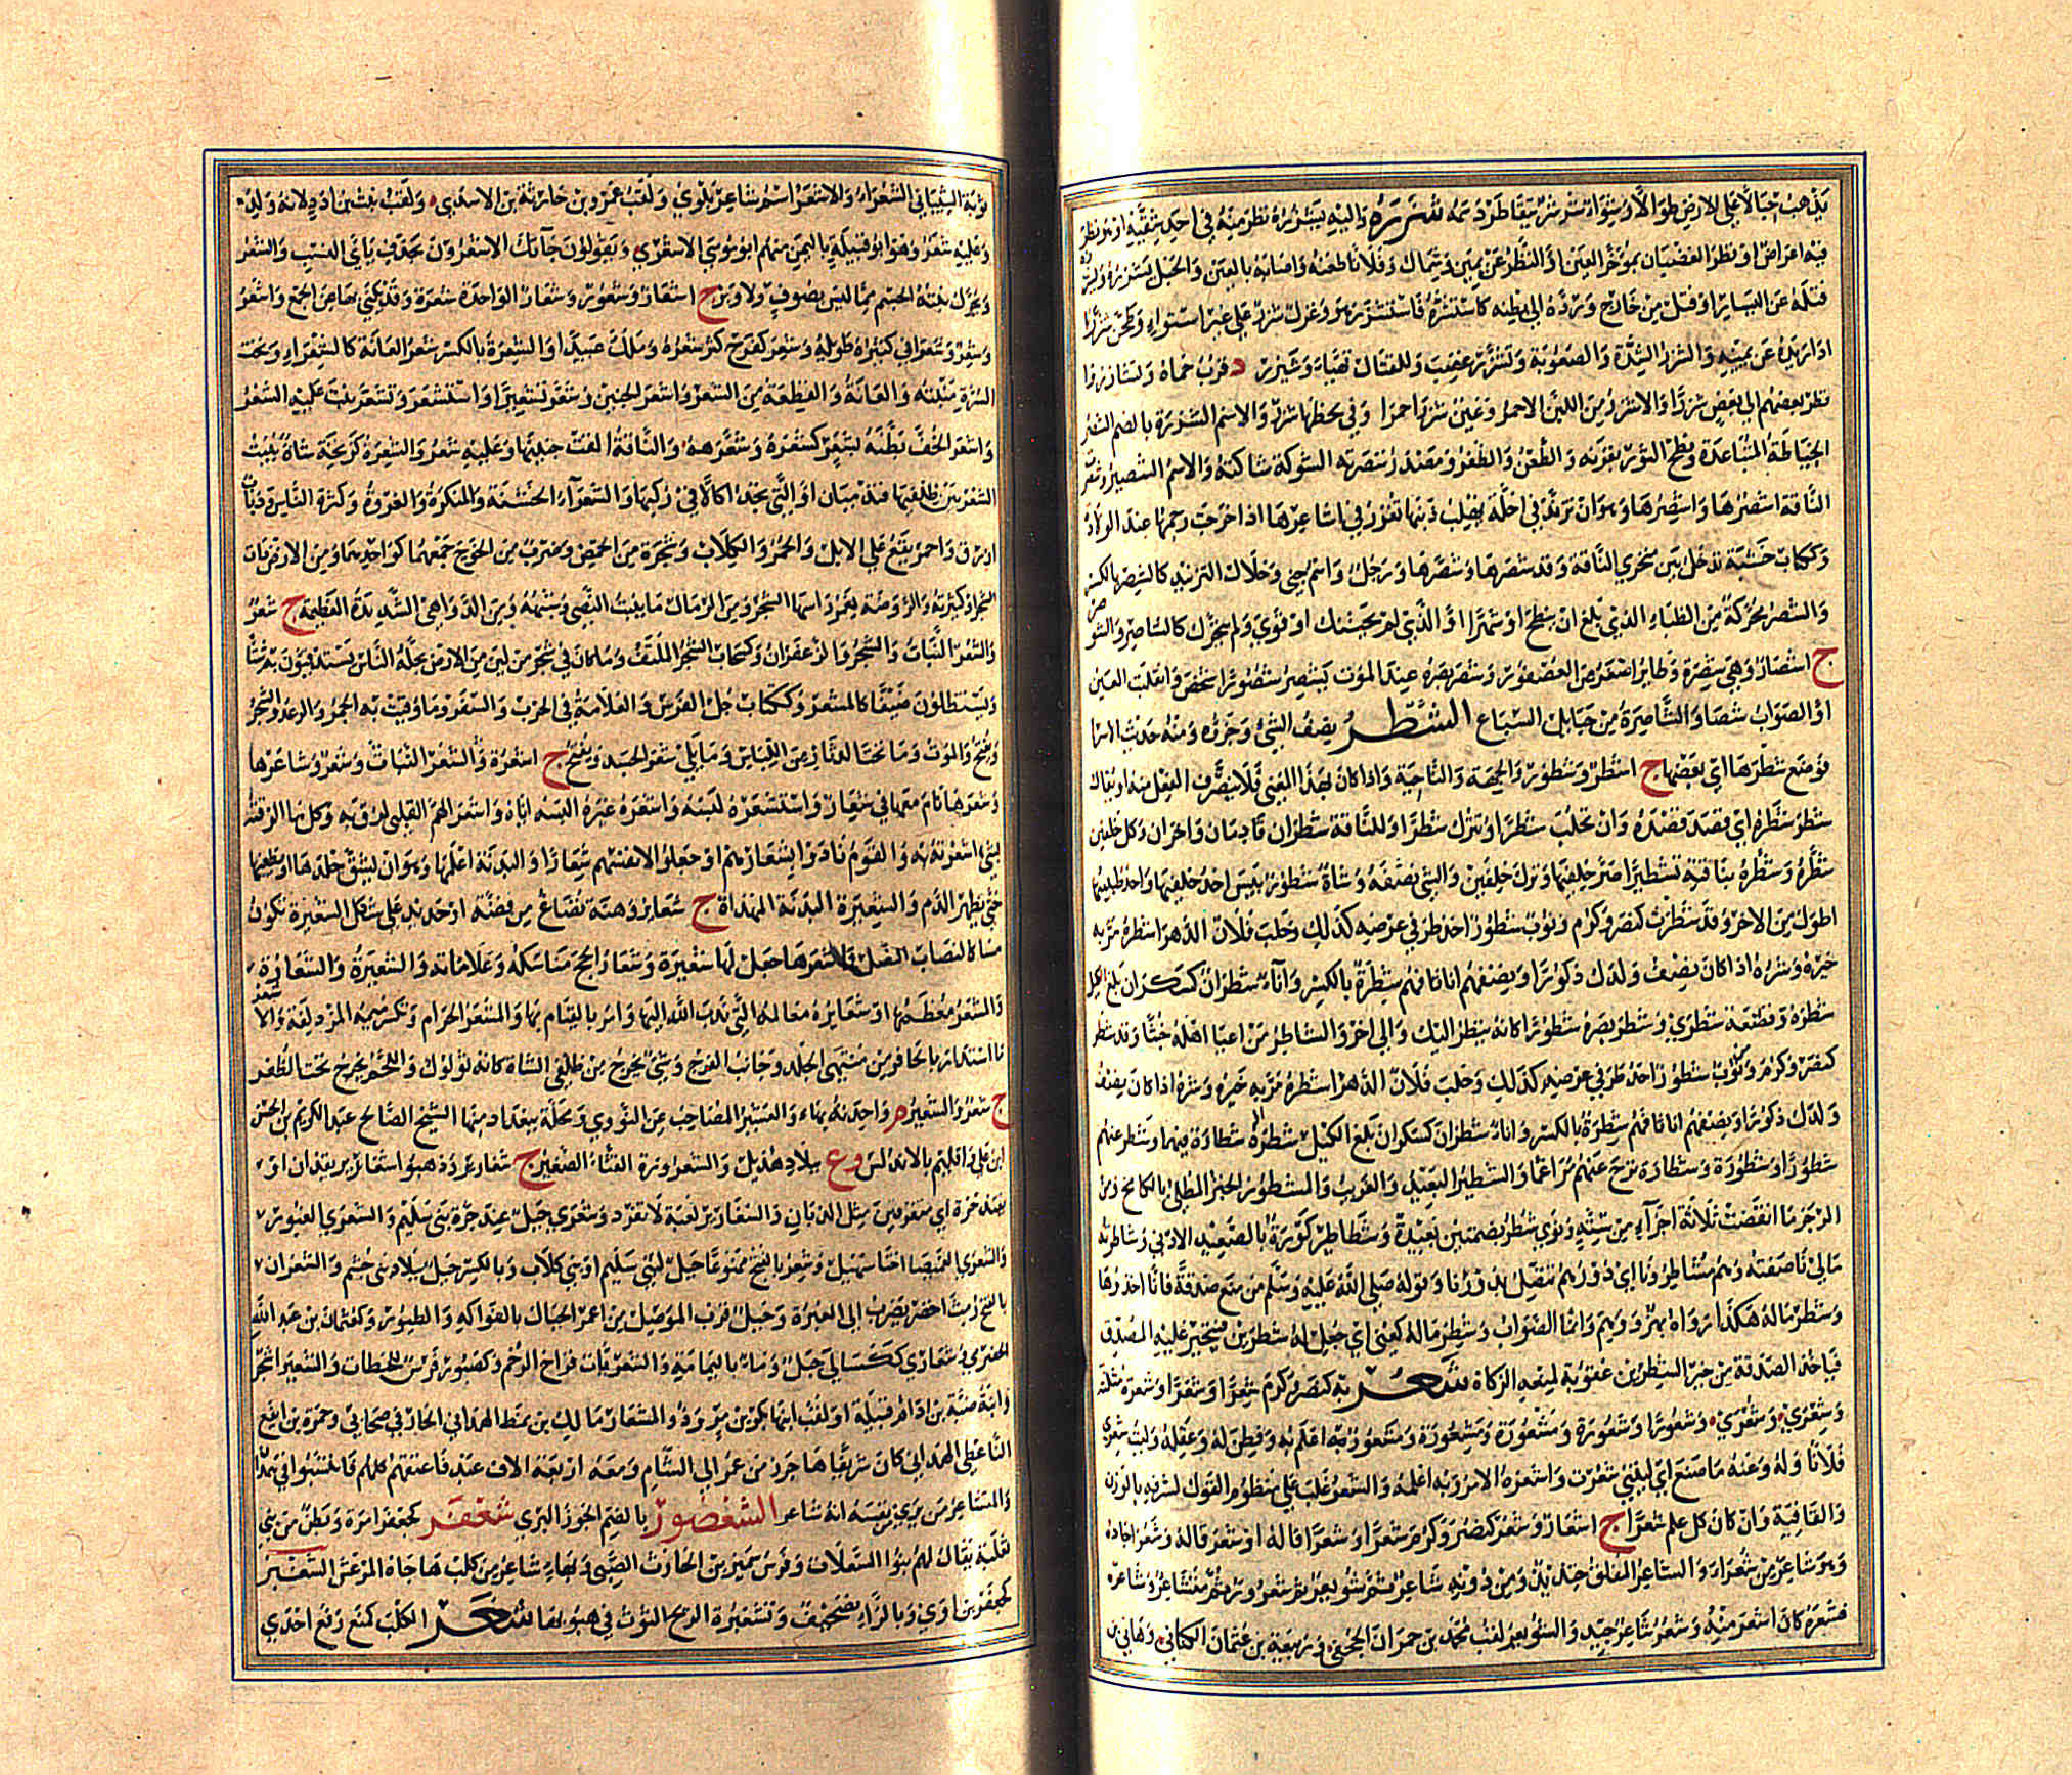 يذهب حبالا على الارض طولا او شواء شرشر يتقاطر دسمه شزره واليه يشزره نظر منه في احد شقيه او هو نظر
فيه اعراض او نظر الغضبان بمؤخر العين او النظر عن يمين وشمال وفلانا طعنه واصابه بالعين والحبل يشزره ويشزره
فتله عن اليسار او فتل من خارج ورده الى بطنه كاستشزره فاستشزر هو وغزل شزر على غير استواء وطحن شزرا
ادار يده عن يمينه والشزر الشدة والصعوبة وتشزر غضب وللقتال تهيا وشيزر د قرب حماة وتشازروا
نظر بعضهم الى بعض شزرا والاشزر من اللبن الاحمر وعين شزرا حمرا وفي لحظها شزر والاسم الشزرة بالضم الشصر
الخياطة المتباعدة ونطح الثور بقرنه والطعن والظفر ومصدر شصرته الشوكة شاكته والاسم الشصير وشصر
الناقة اشصرها واشصرها وهو ان تزند في اخلة بهلب ذنبها تغرز في اشاعرها اذا خرجت رحمها عند الولادة
وككتاب خشبة تدخل بين منخري الناقة وقد شصرها وشصرها ورجل واسم جني وخلال التزنيد كالشصر بالكسر
والشصر محركة من الظباء الذي بلغ ان ينطح او شهرا او الذي لم يحتنك او قوي ولم يتحرك كالشاصر والشوصر
ج اشصار وهي شصرة وطاير اصغر من العصفور وشصر بصره عند الموت يشصر شصورا شخص وانقلبت العين
او الصواب شصا والشاصرة من حبايل السباع الشطر نصف الشئ وجزؤه ومنه حديث الاسرا
فوضع شطرها اي بعضها ج اشطر وشطور والجهة والناحية واذا كان بهذا المعنى فلا يتصرف الفعل منه او يقال
شطر شطره اي قصد قصده وان تحلب شطرا وتترك شطرا وللناقة شطران قادمان واخران وكل خلفين
شطر وشطر بناقته تشطيرا صر خلفيها وترك خلفين والشئ نصفه وشاة شطور يبس احد خلفيها واحد طبييها
اطول من الاخر وقد شطرت كنصر وكرم وثوب شطور احد طرفي عرضه كذلك وحلب فلان الدهر اشطره مر به
خيره وشره اذا كان نصف ولدك ذكورا ونصفهم اناثا فهم شطرة بالكسر وانآء شطران كسكران بلغ الكيل
شطره وقصعة شطرى وشطر بصره شطورا كانه ينظر اليك والى اخر والشاطر من اعيا اهله خبثا وقد شطر
كنصر وكرم وثوب شطور احد طرفي عرضه كذلك وحلب فلان الدهر اشطره مر به خيره وشره اذا كان نصف
ولدك ذكورا ونصفهم اناثا فهم شطرة بالكسر واناء شطران كسكران بلغ الكيل شطره شطارة فيهما وشطر عنهم
شطورا وشطورة وشطارة نزح عنهم مراغما والشطير البعيد والغريب والمشطور الخبز المطلي بالكامخ ومن
الرجز ما انقضت ثلاثة اجزآء من ستة ونوى شطر بضمتين بعيدة وشطاطير كورة بالصعيد الادنى وشاطرته
مالي ناصفته وهم مشاطرونا اي دورهم تتصل بدورنا وقوله صلى الله عليه وسلم من منع صدقة فانا اخذوها
وشطر ماله هكذا رواه بهز ووهم وانما الصواب وشطر ماله كعنى اي جعل له شطرين فيتخير عليه المصدق
فياخذ الصدقة من خير الشطرين عقوبة لمنعه الزكاة شعر به كنصر وكرم شعرا وشعرا وشعرة مثلثة
وشعرى وشعرى وشعورا وشعورة ومشعورا ومشعورة ومشعوراء علم به وفطن له وعقله وليت شعري
فلانا وله وعنه ما صنع اي ليتني شعرت واشعره الامر وبه اعلمه والشعر غلب على منظوم القول لشرفه بالوزن
والقافية وان كان كل علم شعرا ج اشعار وشعر كنصر وكرم شعرا وشعرا قاله او شعر قاله وشعر اجاده
وهو شاعر من شعراء والشاعر المفلق خنذيذ ومن دونه شاعر ثم شويعر ثم شعرور ثم متشاعر وشاعره
فشعره كان اشعر منه وشعر شاعر جيد والشويعر لقب محمد بن حمران الجعفي وربيعة بن عثمان الكناني وهاني بن
توبة الشيباني الشعراء والاشعر اسم شاعر بلوي ولقب عمرو بن حارثة بن الاسدي ولقب نبت بن ادد لانه ولد
وعليه شعر وهو ابو قبيلة باليمن منهم ابو موسى الاشعري ويقولون جآتك الاشعرون بحذف يائي النسب والشعر
ويحرك نبتة الجسم مما ليس بصوف ولا وبر ج اشعار وشعور وشعار الواحدة شعرة وقد يكنى بها عن الجمع واشعر
وشعر وشعراني كثيره طويله وشعر كفرح كثر شعره وملك عبيدا والشعرة بالكسر شعر العانة كالشعراء وتحت
السرة منبته والعانة والقطعة من الشعر واشعر الجنين وشعر تشعيرا واستشعر وتشعر نبت عليه الشعر
واشعر الخف بطنه بشعر كشعره وشعره والناقة القت جنينها وعليه شعر والشعرة كزنخة شاة ينبت
الشعر بين ظلفيها فتدميان او التي تجد اكالا في ركبها والشعرآء الخشنة والمنكرة والفروة وكثرة الناس وذباب
ازرق واحمر يقع على الابل والحمر والكلاب وشجرة من الحمض وضرب من الخوخ جمعهما كواحدهما ومن الارض ذات
الشجر او كثيرته والروضة يغمر راسها الشجر ومن الرمال ما ينبت النصي وشبهه ومن الدواهي الشديدة العظيمة ج شعر
والشعر النبات والشجر والزعفران وكسحاب الشجر الملتف وما كان في شجر من لين من الارض يحله الناس يستدفئون به شتاء
ويستظلون صيفا كالمشعر وككتاب جل الفرس والعلامة في الحرب والسفر وما وقيت به الخمر والرعد والشجر
ويفتح والموت وما تحت الدثار من اللباس وما يلي شعر الجسد ويفتح ج اشعرة والشعر النبات وشعر وشاعرها
وشعرها نام معها في شعار واستشعره لبسه واشعره غيره البسه اياه واشعر الهم القلبي لزق به وكل ما الزقته
بشئ اشعرته به والقوم نادوا بشعارهم او جعلوا لانفسهم شعارا والبدنة اعلمها وهو ان يشق جلدها او يطعنها
حتى يظهر الدم والشعيرة البدنة المهداة ج شعاير وهنة تصاغ من فضة او حديد على شكل الشعيرة تكون
مساكا لنصاب النصل واشعرها جعل لها شعيرة وشعار الحج مناسكه وعلاماته والشعيرة والشعارة
والمشعر معظمها او شعايره معالمه التي ندب الله اليها وامر بالقيام بها والمشعر الحرام وتكسر ميمه المزدلفة والاشعر
ما استدار بالحافر من منتهى الجلد وجانب الفرج وشئ يخرج من ظلفي الشاة كانه ثؤلول واللحم يخرج تحت الظفر
ج شعر والشعير م واحدته بهاء والعشير المصاحب عن النووي ومحلة ببغداد منها الشيخ الصالح عبد الكريم بن الحسن
ابن علي واقليم بالاندلس وع ببلاد هذيل والشعرورة القثاء الصغير ج شعارير وذهبوا شعارير بقذان او
بقندحرة اي متفرقين مثل الذبان والشعارير لعبة لا تفرد وشعرى جبل عند حرة بني سليم والشعرى العبور
والشعرى الغميصا اختا سهيل وشعر بالفتح ممنوعا جبل لبني سليم او بني كلاب وبالكسر جبل ببلاد بني جشم والشعران
بالفتح رمث اخضر يضرب الى الغبرة وجبل قرب الموصل من اعمر الجبال بالفواكه والطيور وكعثمان بن عبد الله
الحضرمي وشعارى ككسالى جبل وماء باليمامة والشعريات فراخ الرخم وكصبور فرس للحبطات والشعيراء شجر
وابنة ضبة بن اد ام قبيلة او لقب ابنها بكر بن مر وذو المشعار مالك بن نمط الهمداني الخارفي صحابي وحمزة بن ايفع
الناعطي الهمداني كان شريفا هاجر زمن عمر الى الشام ومعه اربعة الاف عبد فاعتقهم كلهم فانتسبوا في همدان
والمتشاعر من يرى نفسه انه شاعر الشغصور بالضم الجوز البري شعفر كجعفر امرة وبطن من بني
ثعلبة يقال لهم بنوا السعلاة وفرس سمير بن الحارث الضبي وبهاء شاعر من كلب هاجاه المرعش الشغبر
كجعفر بن اوى وبالزاء تصحيف وتشغبرة الريح التوت في هبوبها شغر الكلب كمنع رفع احدى